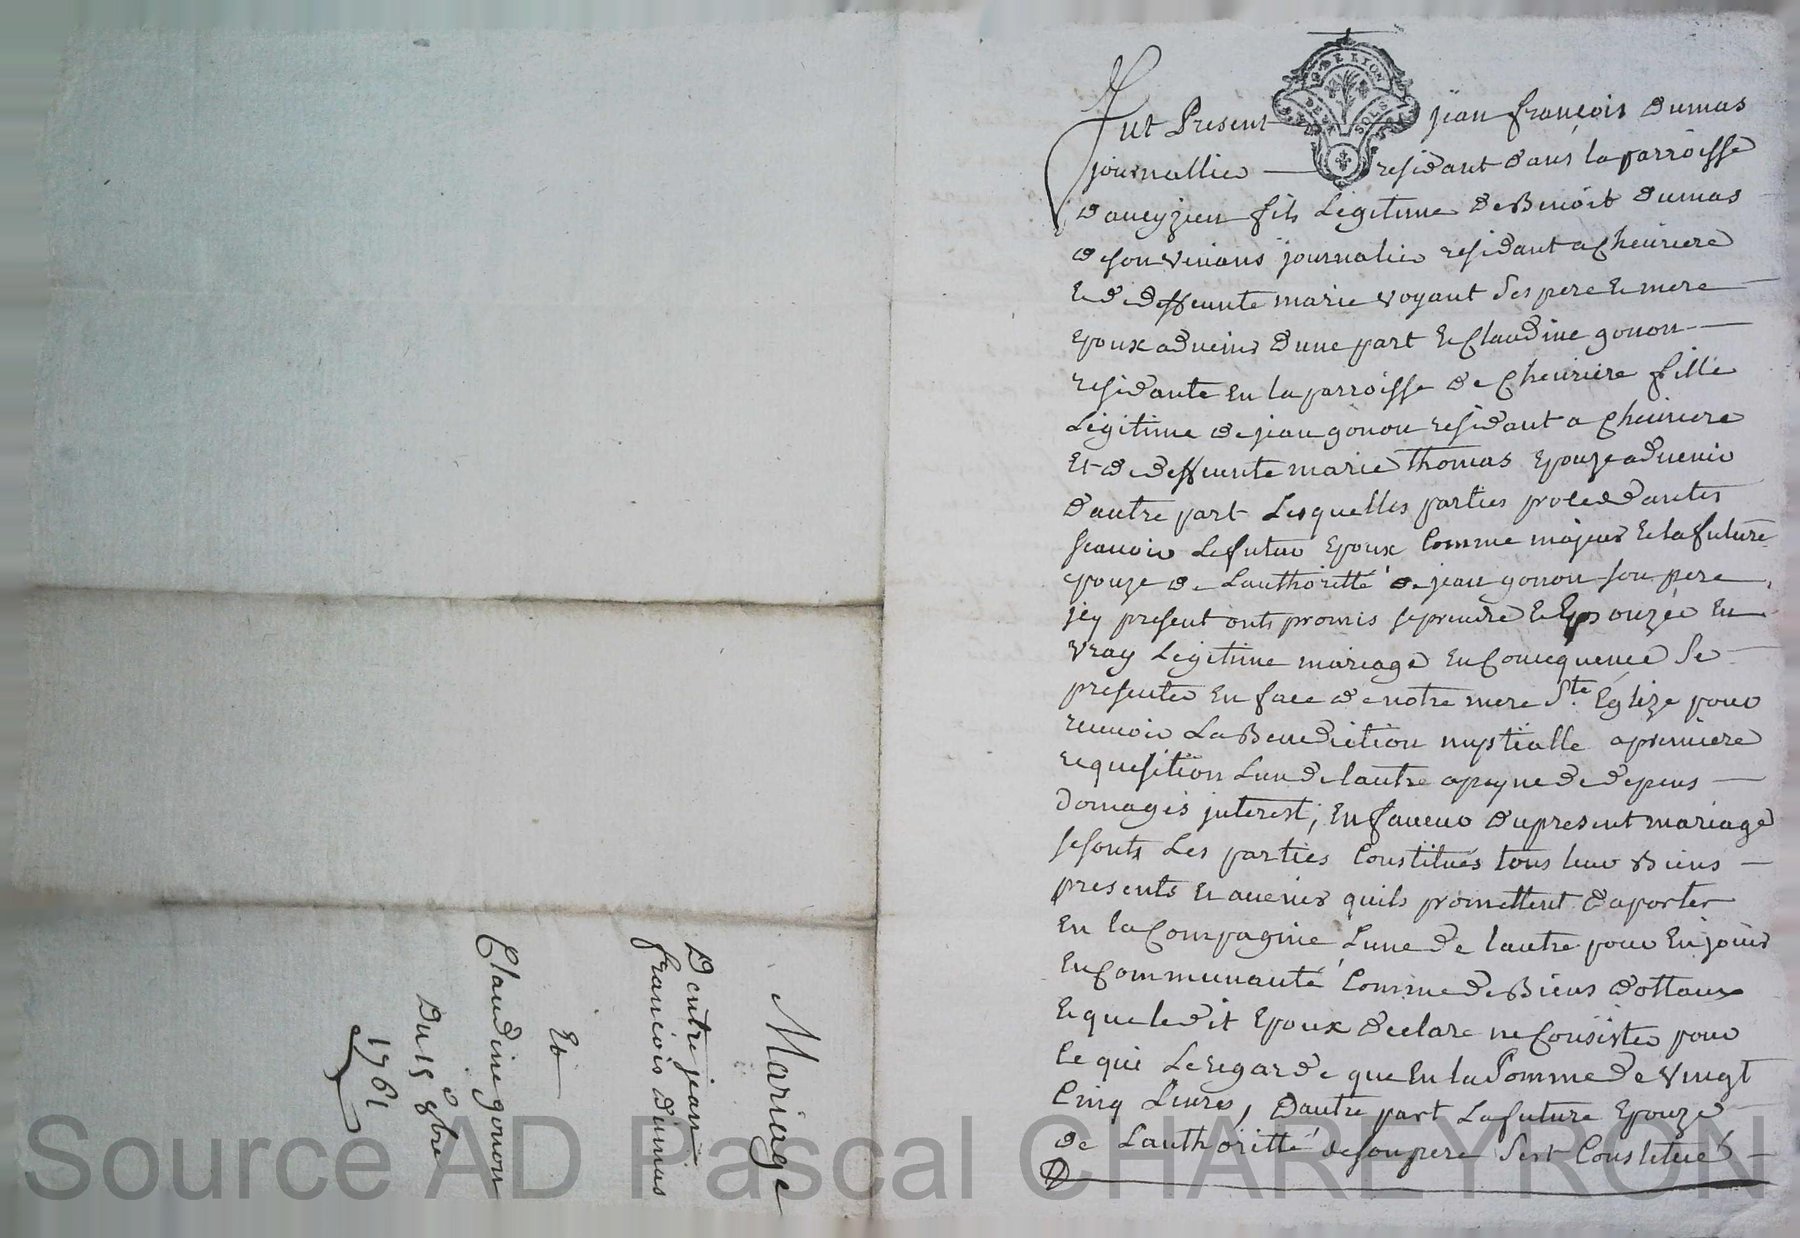 Mariage
D'entre jean
francois dumas
Et
Claudine gonon
Du 15 8bre
1761
G. DE LYON
SOLS
fut Present jean françois dumas
journallier residant dans la parroisse
d'aveyzieu fils Legitime de Benoit dumas
de son vivans journalier residant a chevriere
Et de deffeunte marie voyant ses pere Et mere
Epoux advenir d'une part Et Claudine gonon
residante En la parroisse de chevriere fille
Legitime de jean gonon residant a chevriere
Et de deffeunte marie thomas Epouze advenir
d'autre part Lesquelles parties procedantes
scavoir Le futur Epoux Comme majeur Et la future
epouze de Lauthoritté de jean gonon son pere
jcy present onts promis se prendre Et Epouzer En
vray Legitime mariage En Consequence Se
presenter En face de notre mere Ste Eglize pour
recevoir La Benediction nuptialle a premiere
requisition Lun de lautre a peyne de depens
domages interest, En faveur du present mariage
se sonts Les parties Constitués tous leur Biens
presents Et avenir quils promettent d'aporter
En la Compagnie Lune de lautre pour En jouir
En Communauté Comme de Biens dottaux
Et que ledit Epoux declare ne Consister pour
Ce qui Le regarde que En la Somme de vingt
Cinq Livres, d'autre part La future Epouze
de Lauthoritté de son pere S'est Constitué
Source AD Pascal CHAREYRON